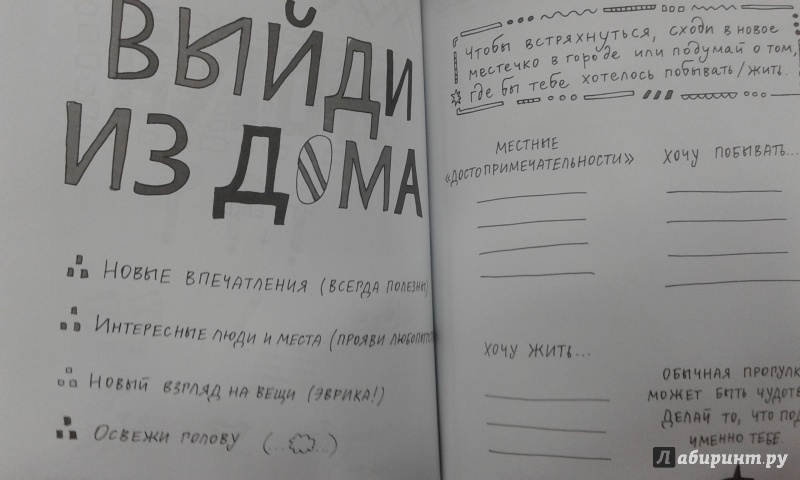 ВЫЙДИ
ИЗ ДОМА
НОВЫЕ ВПЕЧАТЛЕНИЯ (ВСЕГДА ПОЛЕЗНЫ)
ИНТЕРЕСНЫЕ ЛЮДИ И МЕСТА (ПРОЯВИ
НОВЫЙ ВЗГЛЯД НА ВЕЩИ (ЭВРИКА!)
ОСВЕЖИ ГОЛОВУ (... ...)
Чтобы встряхнуться, сходи в новое
местечко в городе или подумай о том,
где бы тебе хотелось побывать/жить.
МЕСТНЫЕ
«ДОСТОПРИМЕЧАТЕЛЬНОСТИ»
ХОЧУ ПОБЫВАТЬ...
ХОЧУ ЖИТЬ...
ОБЫЧНАЯ
МОЖЕТ БЫТЬ
ДЕЛАЙ ТО, ЧТО
ИМЕННО ТЕБЕ.
Лабиринт.ру